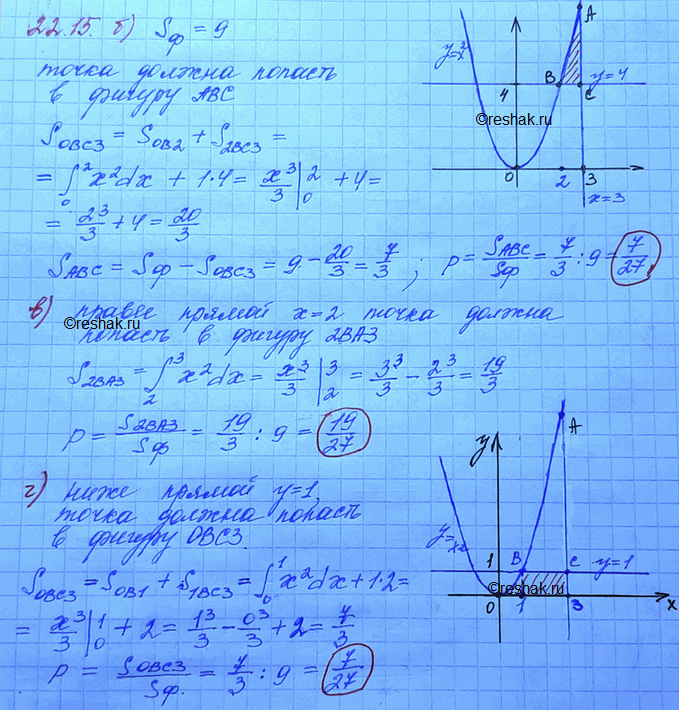 22.15. б) Sф = 9
точка должна попасть
в фигуру ABC
S_OBC3 = S_OB2 + S_2BC3 =
= ∫₀² x²dx + 1·4 = x³/3 |₀² + 4 =
= 2³/3 + 4 = 20/3
S_ABC = Sф − S_OBC3 = 9 − 20/3 = 7/3 ; p = S_ABC/Sф = 7/3 : 9 = 7/27
y=x²
A
B
y=4
C
4
©reshak.ru
0
2
3
x=3
в) правее прямой x=2 точка должна
©reshak.ru
попасть в фигуру 2BA3
S_2BA3 = ∫₂³ x²dx = x³/3 |₂³ = 3³/3 − 2³/3 = 19/3
p = S_2BA3/Sф = 19/3 : 9 = 19/27
г) ниже прямой y=1,
точка должна попасть
в фигуру OBC3.
S_OBC3 = S_OB1 + S_1BC3 = ∫₀¹ x²dx + 1·2 =
= x³/3 |₀¹ + 2 = 1³/3 − 0³/3 + 2 = 7/3
p = S_OBC3/Sф. = 7/3 : 9 = 7/27
y
A
y=x²
1
B
C
y=1
©reshak.ru
0
1
3
x